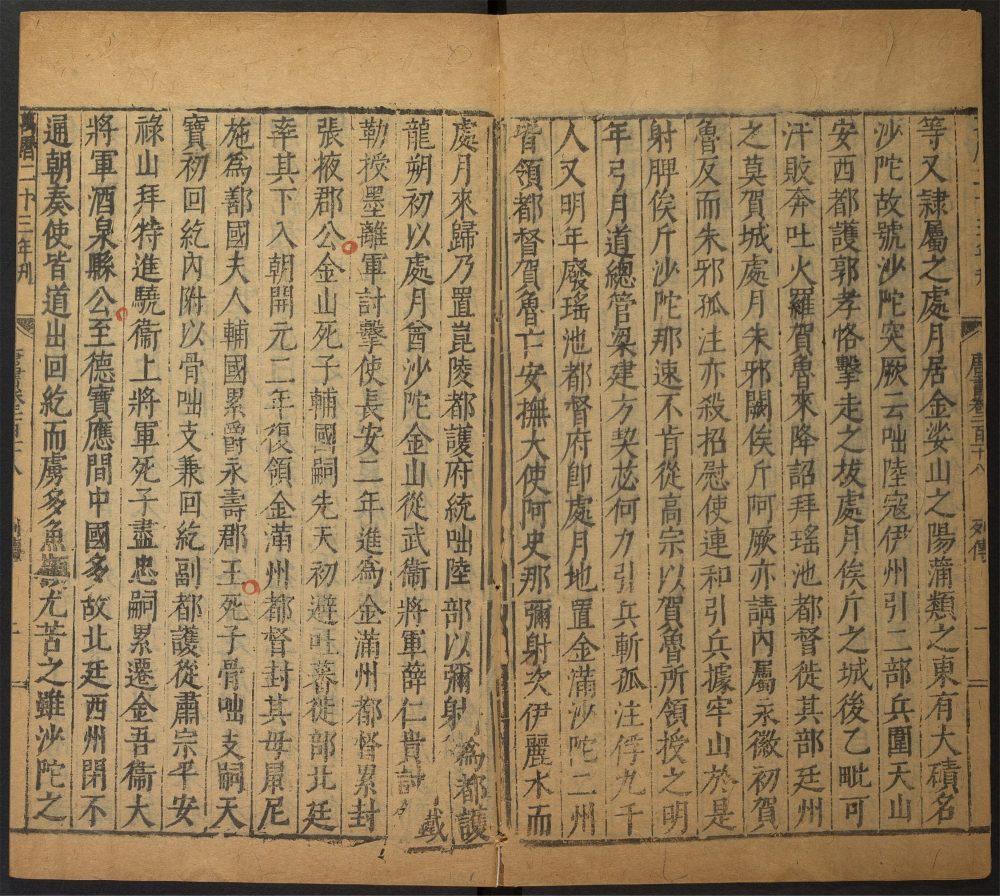 等又隸屬之處月居金娑山之陽蒲類之東有大磧名
沙陀故號沙陀突厥云咄陸寇伊州引二部兵圍天山
安西都護郭孝恪擊走之拔處月俟斤之城後乙毗可
汗敗奔吐火羅賀魯來降詔拜瑤池都督徙其部廷州
之莫賀城處月朱邪闕俟斤阿厥亦請內屬永徽初賀
魯反而朱邪孤注亦殺招慰使連和引兵據牢山於是
射脾俟斤沙陀那速不肯從高宗以賀魯所領授之明
年弓月道總管梁建方契苾何力引兵斬孤注俘九千
人又明年廢瑤池都督府卽處月地置金滿沙陀二州
皆領都督賀魯亡安撫大使阿史那彌射次伊麗水而
處月來歸乃置崑陵都護府統咄陸部以彌射爲都護
龍朔初以處月酋沙陀金山從武衞將軍薛仁貴討鐵
勒授墨離軍討擊使長安二年進爲金滿州都督累封
張掖郡公金山死子輔國嗣先天初避吐蕃徙部北廷
率其下入朝開元二年復領金滿州都督封其母鼠尼
施爲鄯國夫人輔國累爵永壽郡王死子骨咄支嗣天
寶初回紇內附以骨咄支兼回紇副都護從肅宗平安
祿山拜特進驍衞上將軍死子盡忠嗣累遷金吾衞大
將軍酒泉縣公至德寶應間中國多故北廷西州閉不
通朝奏使皆道出回紇而虜多漁擷尤苦之雖沙陀之
萬曆二十三年刋